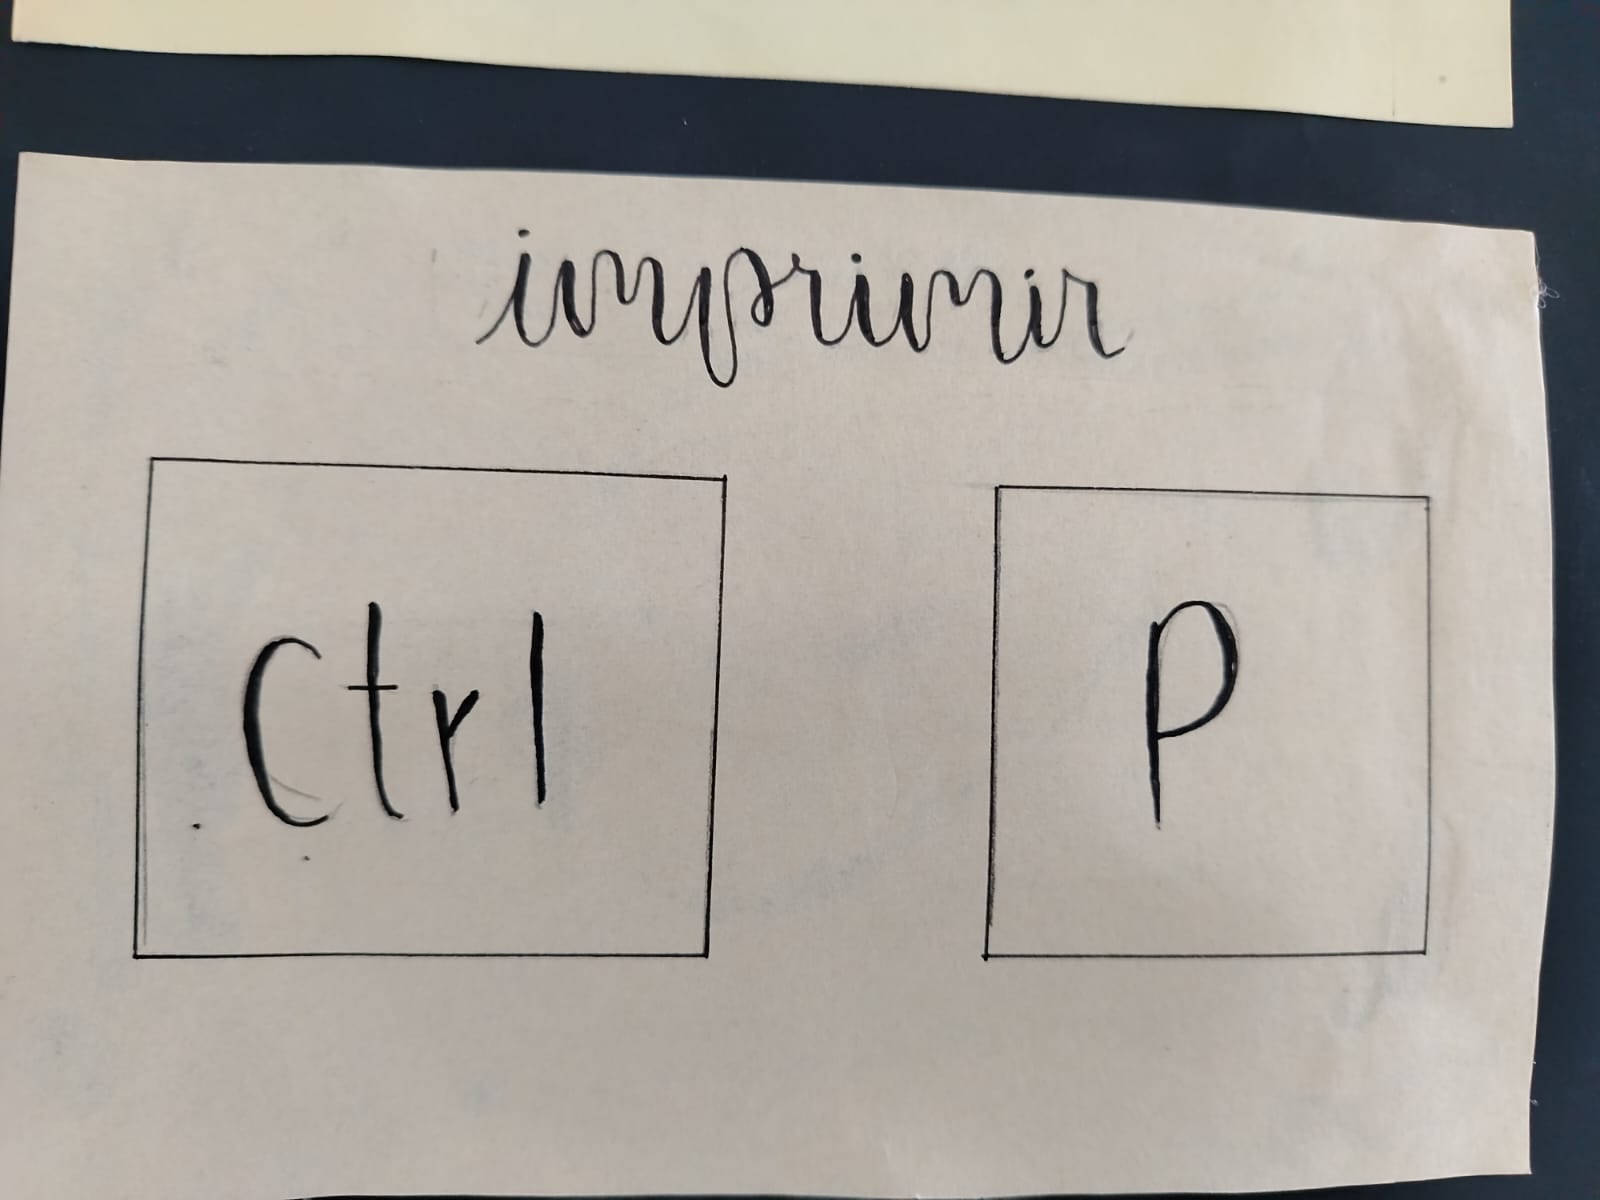 imprimir
Ctrl P